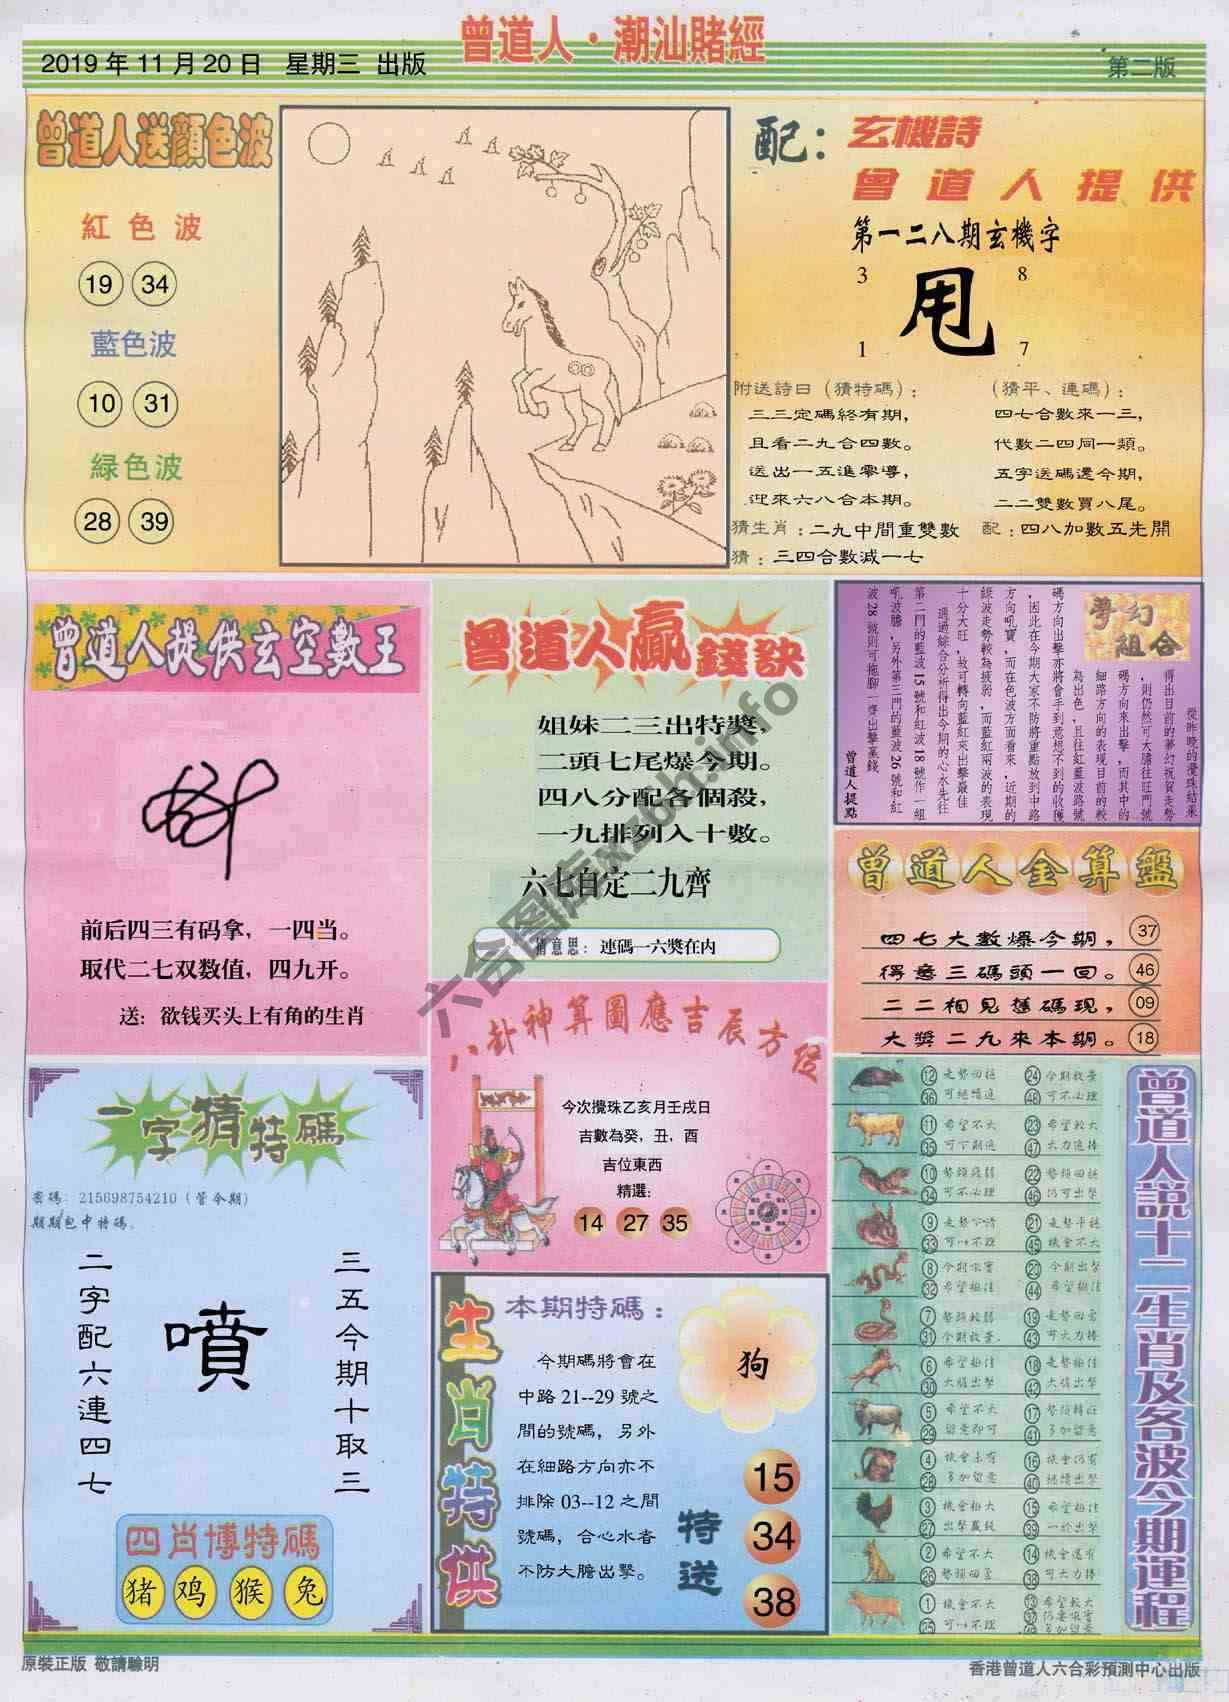 曾道人·潮汕賭經
2019年11月20日 星期三 出版
第二版
曾道人送顏色波
紅色波
19 34
藍色波
10 31
緑色波
28 39
配：
玄機詩
曾道人提供
第一二八期玄機字
3 8
甩
1 7
附送詩曰（猜特碼）：
三三定碼終有期，
且看二九合四數。
送出一五進零導，
迎來六八合本期。
（猜平、連碼）：
四七合數來一三，
代數二四同一類。
五字送碼還今期，
二二雙數買八尾。
猜生肖：二九中間重雙數
配：四八加數五先開
猜：三四合數減一七
曾道人提供玄空數王
前后四三有码拿，一四当。
取代二七双数值，四九开。
送：欲钱买头上有角的生肖
曾道人贏錢訣
姐妹二三出特獎，
二頭七尾爆今期。
四八分配各個殺，
一九排列入十數。
六七自定二九齊
猜意思：連碼一六獎在内
夢幻組合
從昨晚的攪珠結果
得出目前的夢幻祝賀走勢
，則仍然可大膽往旺門號
碼方向來出擊，而其中的
細路方向的表現目前的較
為出色，且往紅藍波路號
碼方向出擊亦將會手到意想不到的收穫
，因此在今期大家不防將重點放到中路
方向吼寶，而在色波方面看來，近期的
綠波走勢較為疲弱，而藍紅兩波的表現
十分大旺，故可轉向藍紅來出擊最佳
通過綜合分析得出今期的心水先往
第二門的藍波15號和紅波18號作一組
吼波膽，另外第三門的藍波26號和紅
波28號則可拖腳一齊出擊贏錢
曾道人提點
曾道人金算盤
四七大數爆今期， 37
得意三碼頭一回。 46
二二相見舊碼現， 09
大獎二九來本期。 18
八卦神算圖應吉辰方位
今次攪珠乙亥月壬戌日
吉數為癸，丑，酉
吉位東西
精選：
14 27 35
一字猜特碼
密碼：215698754210（管今期）
期期包中特碼。
二字配六連四七
噴
三五今期十取三
四肖博特碼
猪 鸡 猴 兔
生肖特供
本期特碼：
今期碼將會在
中路21--29號之
間的號碼，另外
在細路方向亦不
排除03--12之間
號碼，合心水者
不防大膽出擊。
狗
特送
15
34
38
曾道人說十二生肖及各波今期運程
12 36
24 48
11 希望不大 35
23 希望較大 47
10 34
22 46 仍可出擊
9 33
21 45 機會不大
8 32
20 今期出擊 44
7 31
19 43
6 30
18 42
5 希望不大 29 留意即可
17 41
4 28
16 40
3 機會極大 27
15 39
2 希望不大 26
14 38
1 機會不大 25
13 希望較大 37 49
原裝正版 敬請驗明
香港曾道人六合彩預測中心出版
六合图库xz6h.info